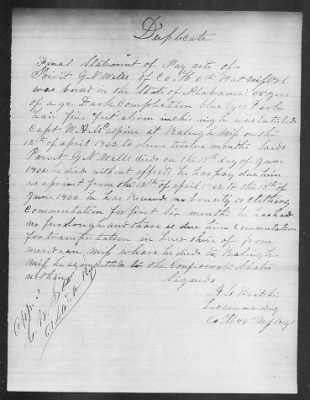 Duplicate
Final Statement of Pay acts of
Privit G N Wells of Co H 6th Bat Miss Vol
was bornd in the State of Alabama
years of age Dark Complection blue eyes Dark
hair five feet eleven inches high was Enlisted
Capt W A Mcalpine at Raleigh Miss on the
12th of april 1862 to serve twelve months Said
Privit G N Wells died on the of June
1862 he died without effects he has pay due him
as a privit from the 12th of april 1862 to the of
June 1862 he has Received no bounty or clothing
Commutation for first six months he has had
no furlough and there is due him Commutation
for transportation in hire of from
meridean Miss where he died to Raleigh
Miss he is indebted to the Confederate States
nothing
Signed
Lut commanding
Co H 46th Miss Regt